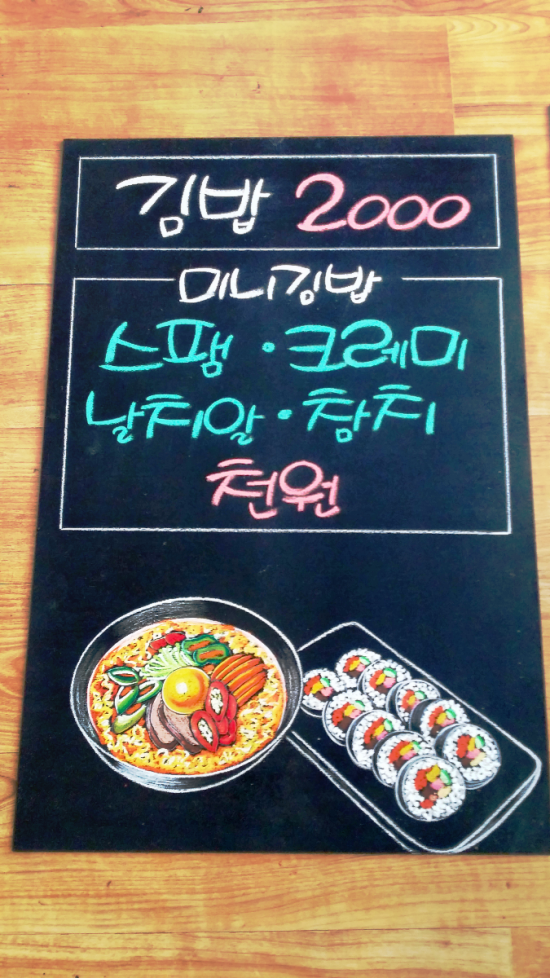 김밥 2000
미니김밥
스팸 · 크레미
날치알 · 참치
천원